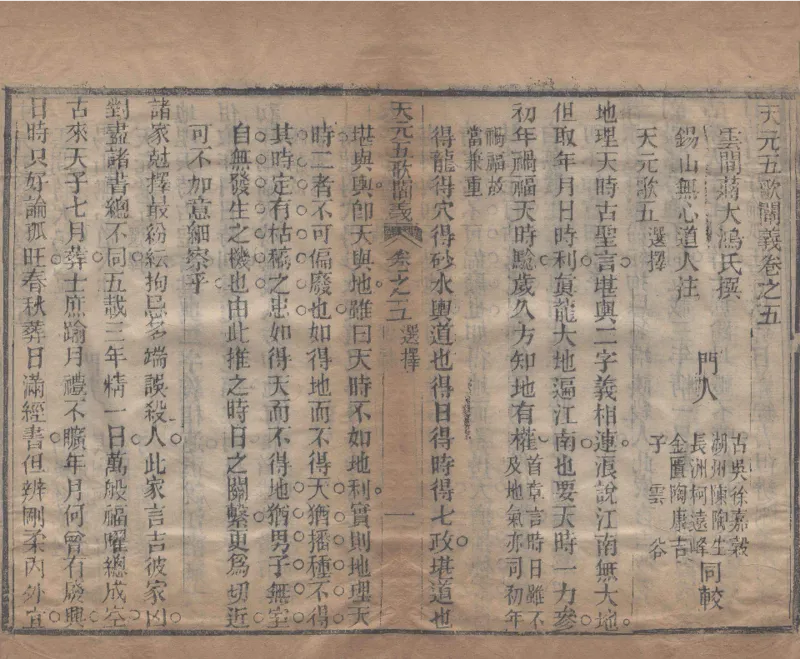 天元五歌闡義卷之五
雲間蔣大鴻氏撰
錫山無心道人注
門人
古吳徐嘉穀
湖州陳陶生
長洲柯遠峰
金匱陶康吉
子雲谷
同較
天元歌五
選擇
地理天時古聖言堪輿二字義相連浪說江南無大地
但取年月日時利眞龍大地遍江南也要天時一力參
初年禍福天時驗歲久方知地有權
首章言時日雖不
及地氣亦司初年
禍福故
當兼重
得龍得穴得砂水輿道也得日得時得七政堪道也
天元五歌闡義
卷之五
選擇
一
堪輿輿卽天與地雖曰天時不如地利實則地理天
時二者不可偏廢也如得地而不得天猶播種不得
其時定有枯槁之患如得天而不得地猶男子無室
自無發生之機也由此推之時日之關繫更爲切近
可不加意細察乎
諸家剋擇最紛紜拘忌多端誤殺人此家言吉彼家凶
對盡諸書總不同五載三年精一日萬般福曜總成空
古來天子七月葬士庶踰月禮不曠年月何曾有廢興
日時只好論孤旺春秋葬日滿經書但辨剛柔內外宜